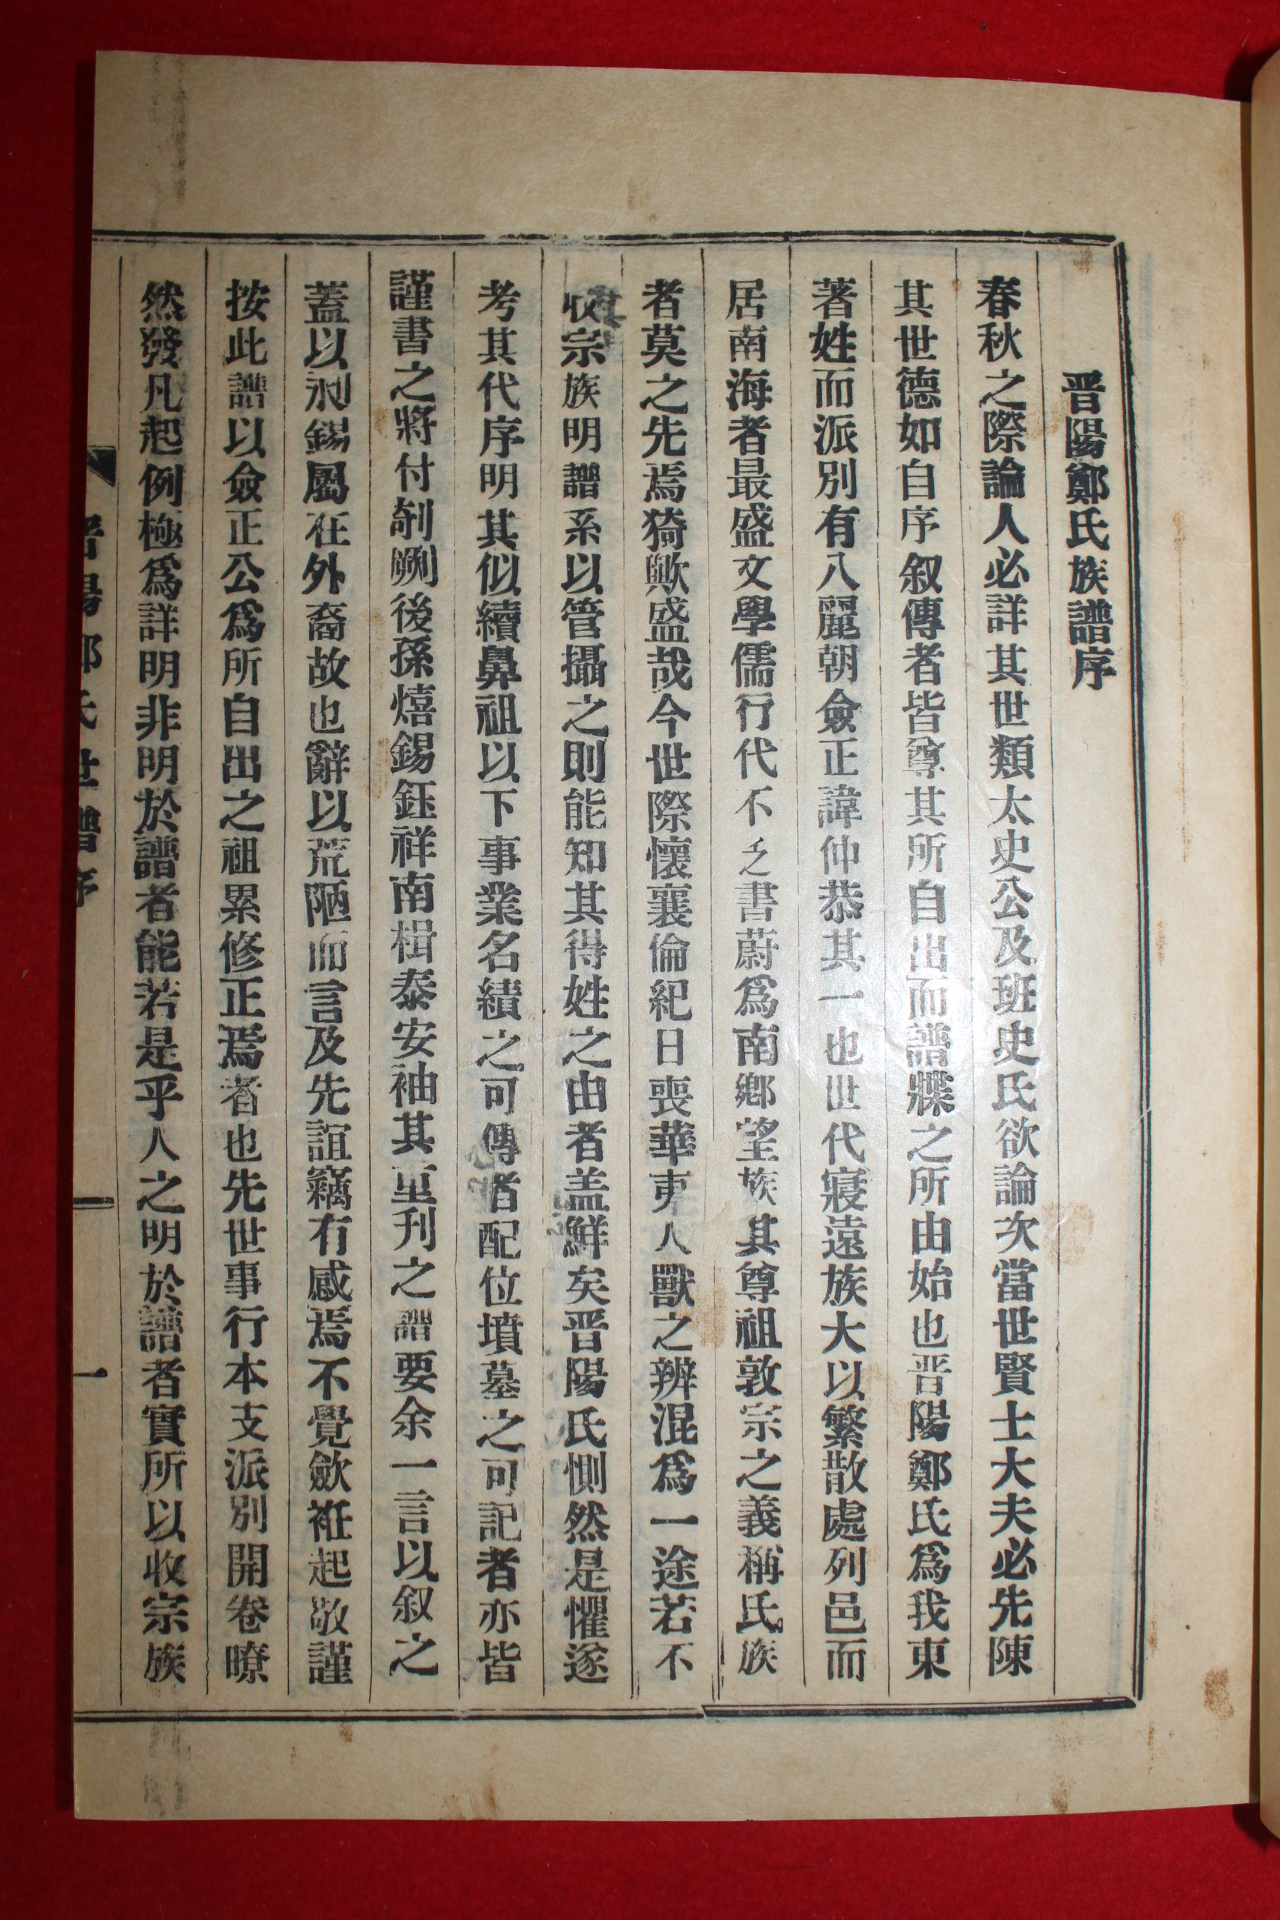 晋陽鄭氏族譜序
春秋之際論人必詳其世類太史公及班史氏欲論次當世賢士大夫必先陳
其世德如自序叙傳者皆尊其所自出而譜牒之所由始也晋陽鄭氏爲我東
著姓而派別有八麗朝僉正諱仲恭其一也世代寢遠族大以繁散處列邑而
居南海者最盛文學儒行代不乏書蔚爲南鄉望族其尊祖敦宗之義稱氏族
者莫之先焉猗歟盛哉今世際懷襄倫紀日喪華夷人獸之辨混爲一途若不
收宗族明譜系以管攝之則能知其得姓之由者盖鮮矣晋陽氏惻然是懼遂
考其代序明其似續鼻祖以下事業名績之可傳者配位墳墓之可記者亦皆
謹書之將付剞劂後孫熺錫鈺祥南楫泰安袖其重刊之譜要余一言以叙之
蓋以泂錫屬在外裔故也辭以荒陋而言及先誼竊有感焉不覺歛衽起敬謹
按此譜以僉正公爲所自出之祖累修正焉者也先世事行本支派別開卷瞭
然發凡起例極爲詳明非明於譜者能若是乎人之明於譜者實所以收宗族
晋陽鄭氏世譜序
一